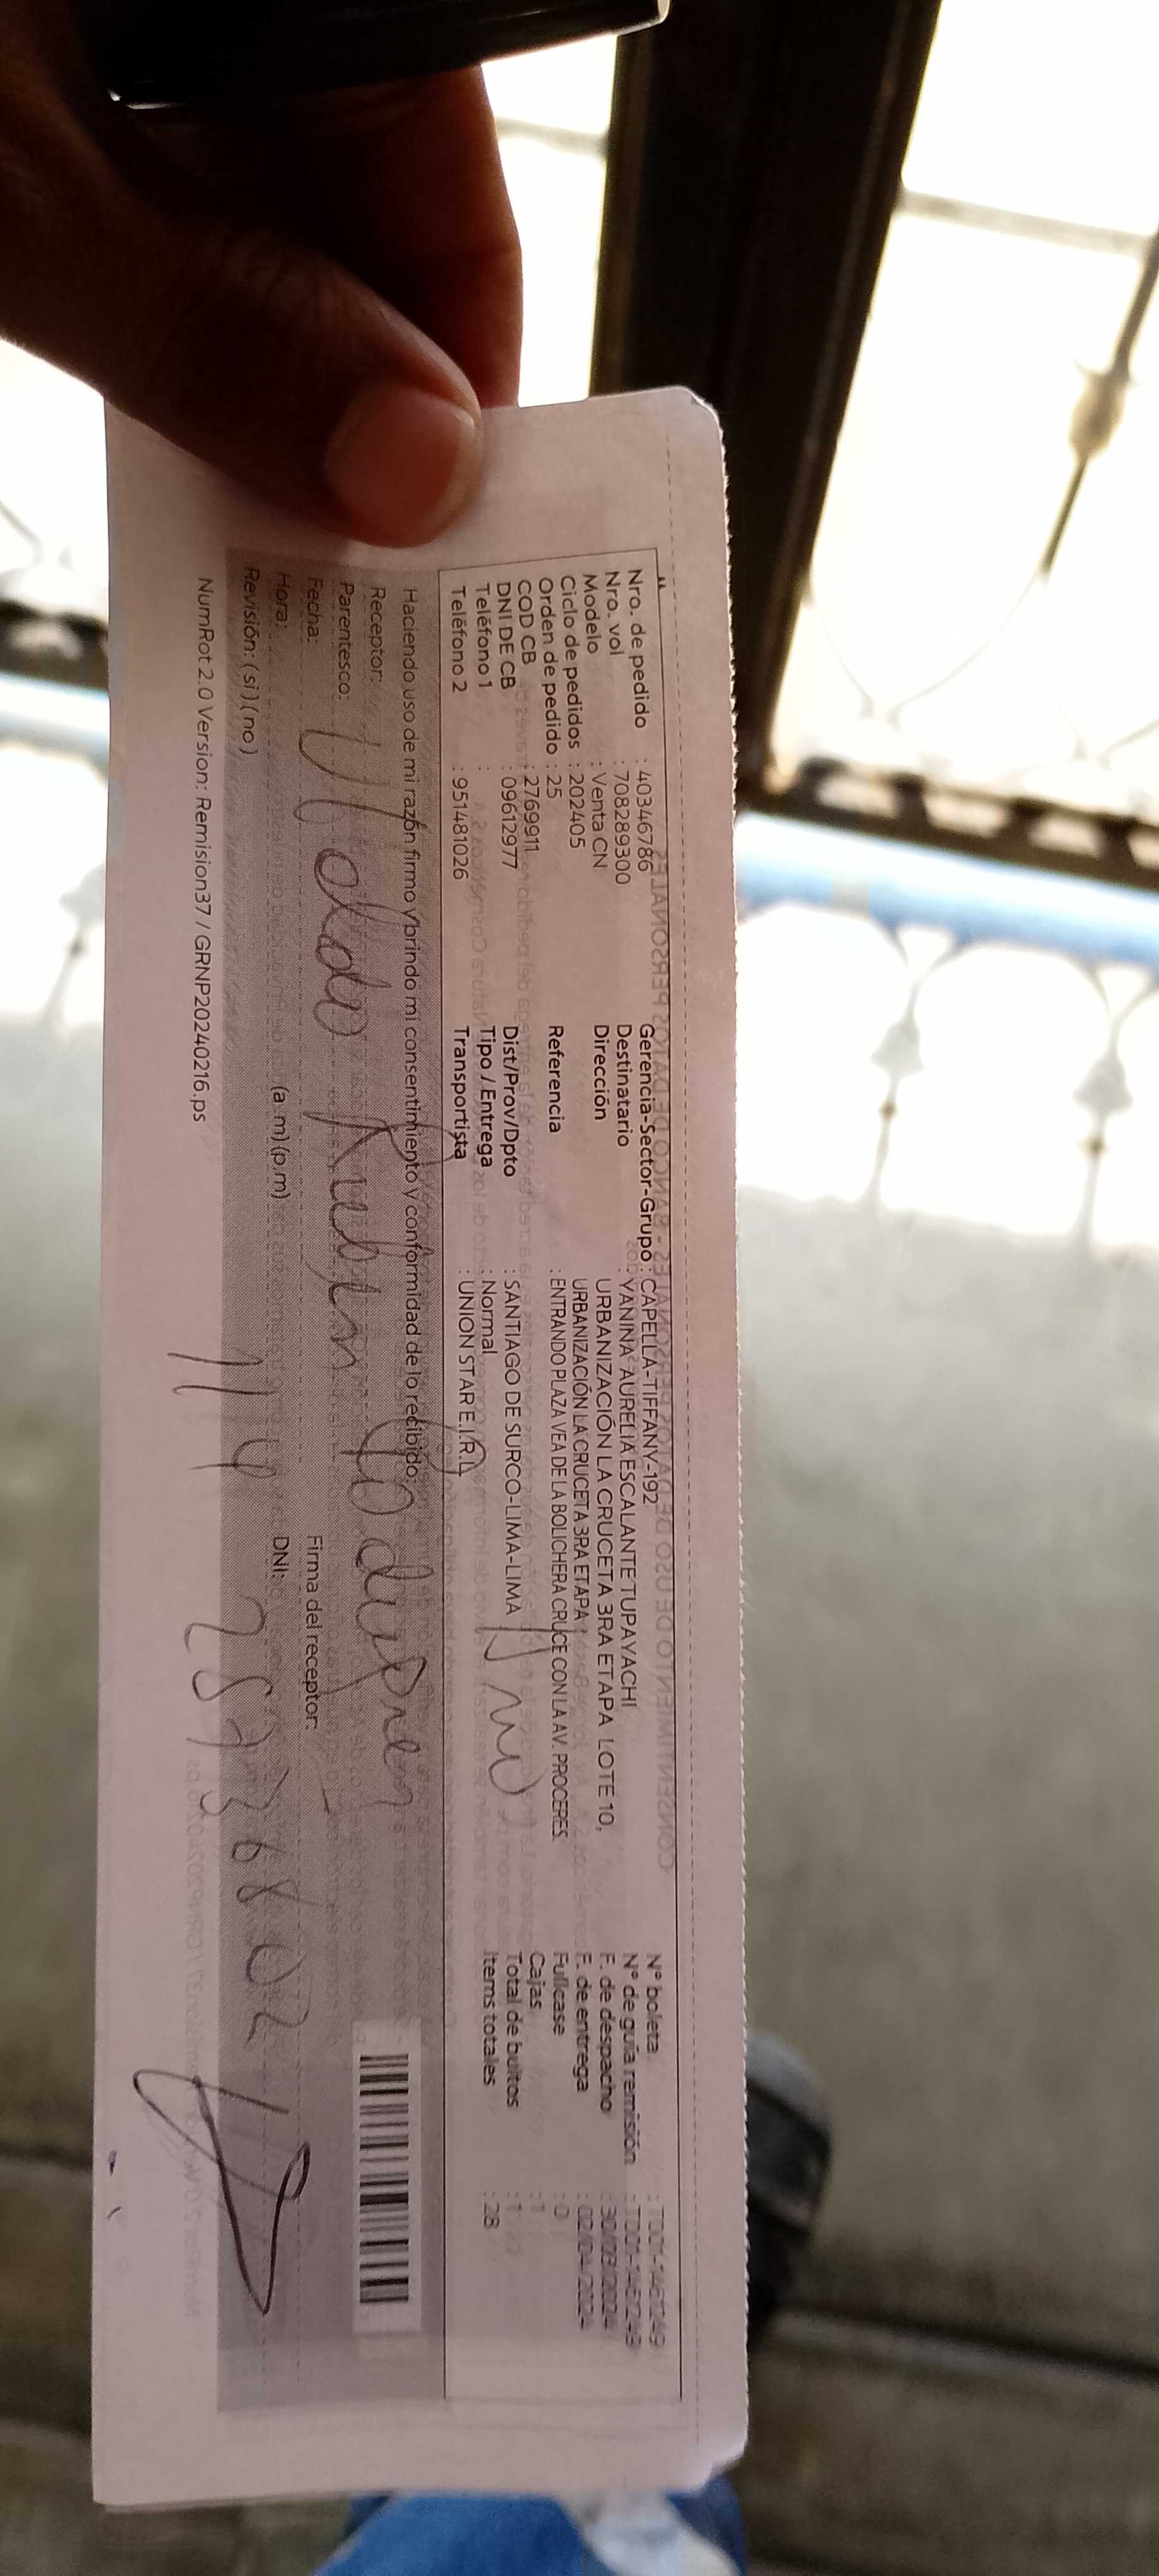 Nro. de pedido : 40346786
Nro. vol : 708289300
Modelo : Venta CN
Ciclo de pedidos : 202405
Orden de pedido : 25
COD CB : 2769911
DNI DE CB : 09612977
Teléfono 1 :
Teléfono 2 : 951481026
Gerencia-Sector-Grupo : CAPELLA-TIFFANY-192
Destinatario : YANINA AURELIA ESCALANTE TUPAYACHI
Dirección URBANIZACIÓN LA CRUCETA 3RA ETAPA LOTE 10,
URBANIZACIÓN LA CRUCETA 3RA ETAPA
Referencia : ENTRANDO PLAZA VEA DE LA BOLICHERA CRUCE CON LA AV. PROCERES.
Dist/Prov/Dpto : SANTIAGO DE SURCO-LIMA-LIMA
Tipo / Entrega : Normal
Transportista : UNION STAR E.I.R.L
N° boleta
N° de guía remisión
F. de despacho : 30/03/2024
F. de entrega : 02/04/2024
Fullcase : 0
Cajas : 1
Total de bultos : 1
Items totales : 28
Haciendo uso de mi razón firmo y brindo mi consentimiento y conformidad de lo recibido:
Receptor:
Parentesco:
Fecha:
Firma del receptor:
Hora: (a. m) (p.m) DNI:
Revisión: (si) (no)
NumRot 2.0 Version: Remision37 / GRNP20240216.ps